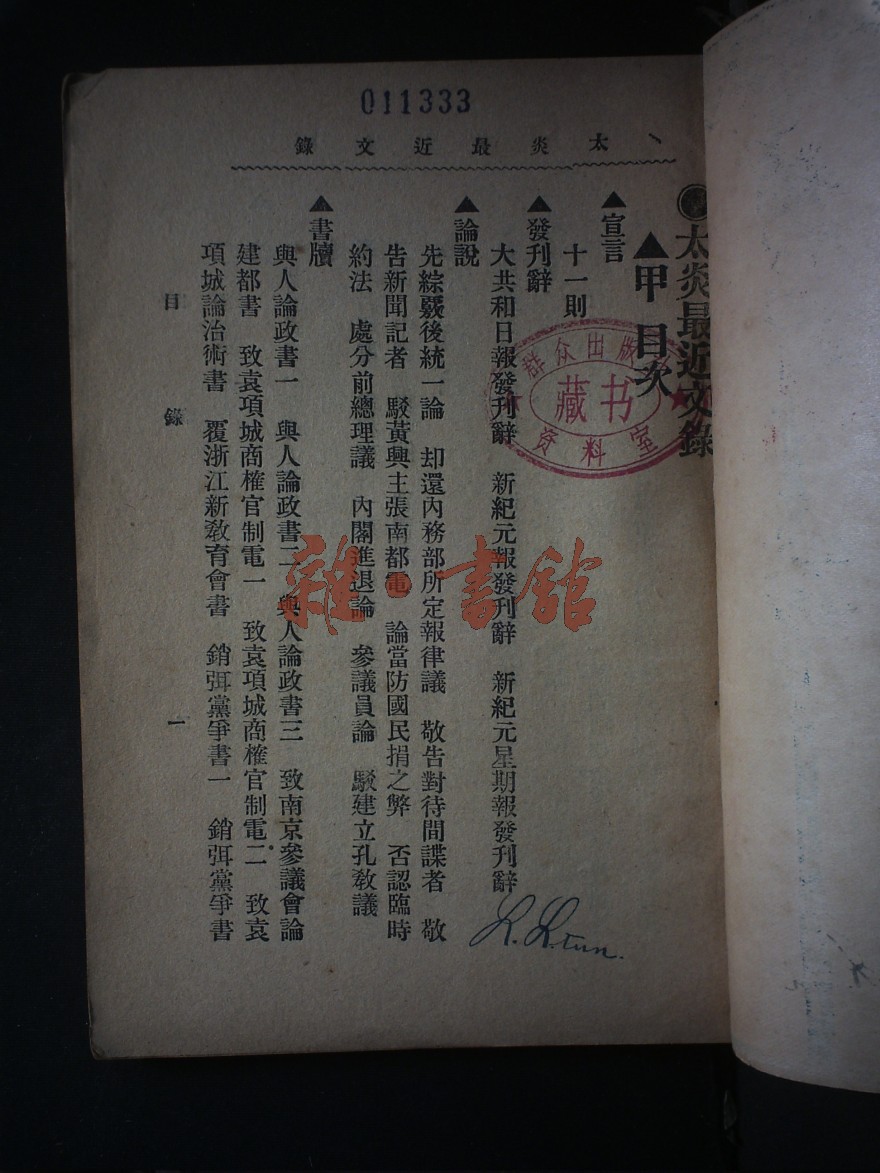 011333
太炎最近文錄
太炎最近文錄
▲甲 目次
▲宣言
十一則
▲發刊辭
大共和日報發刊辭 新紀元報發刊辭 新紀元星期報發刊辭
▲論說
先綜覈後統一論 却還內務部所定報律議 敬告對待間諜者 敬
告新聞記者 駁黃興主張南都電 論當防國民捐之弊 否認臨時
約法 處分前總理議 內閣進退論 參議員論 駁建立孔教議
▲書牘
與人論政書一 與人論政書二 與人論政書三 致南京參議會論
建都書 致袁項城商榷官制電一 致袁項城商榷官制電二 致袁
項城論治術書 覆浙江新教育會書 銷弭黨爭書一 銷弭黨爭書
目錄 一
群众出版
藏书
资料室
雜·書館